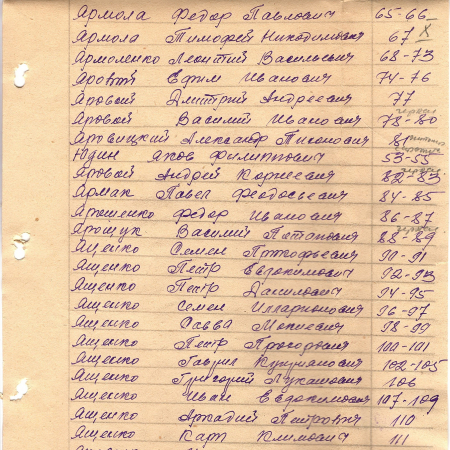 Ярмола Федор Павлович 65-66
Ярмола Тимофей Никодимович 67 X
Ярмоленко Леонтий Васильевич 68-73
Яровой Ефим Иванович 74-76
Яровой Дмитрий Андреевич 77
Яровой Василий Иванович 78-80
Яровицкий Александр Тихонович 81
Юдин Яков Филиппович 53-55
Яровой Андрей Корнеевич 82-83
Ярмак Павел Феодосьевич 84-85
Ярошенко Федор Иванович 86-87
Ярощук Василий Потапович 88-89
Ященко Семен Прокофьевич 90-91
Ященко Петр Евдокимович 92-93
Ященко Петр Данилович 94-95
Ященко Семен Илларионович 96-97
Ященко Савва Мокиевич 98-99
Ященко Петр 100-101
Ященко Гаврил Куприанович 102-105
Ященко Григорий Лукашович 106
Ященко Иван Евдокимович 107-109
Ященко Аркадий Петрович 110
Ященко Карп Климович 111